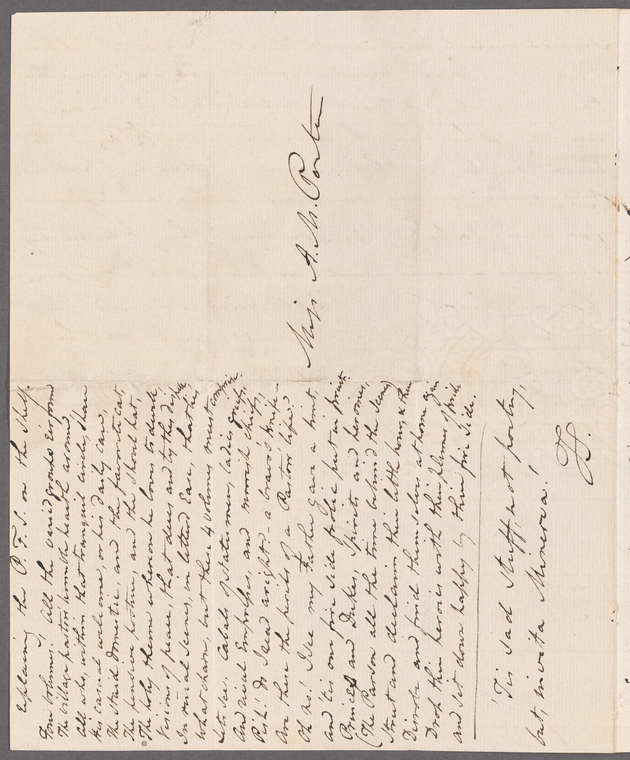 Miss A. M. Porter
Explaining the P. F. S. on the Shelf.
Four Volumes! All the varied groups Env
The Village pastor from the hearth around,
All who, within that tranquil circle, share
His casual welcome, or his daily care,
The staid domestic, and the favorite cat,
The pensive posture, and the shovel hat,
The holy theme whereon he loves to dwell,
Visions of peace, that dews and
In rural scenes, in letter'd Ease, that
What charm, but these 4 Volumes must
Lets see. Cabals of Statesmen, ladies
And rival Empresses, and moorish Chiefs,
Pish! Do I read aright? – a bravo's knife –
Are these the perils of a Pastor's life?
Oh no! I see my Father gave a hint,
and 'tis our fire side frolic put in print
Princes and Dukes, Spirits and heroines,
(The Parson all the time behind the Scenes)
Strut and declaim their little hour, & then
Disrobe and find themselves at home again
Drop their heroics with their plumes of pride
and sit down happy by their fire side.
'Tis sad stuff, not poetry,
but, invita Minerva!